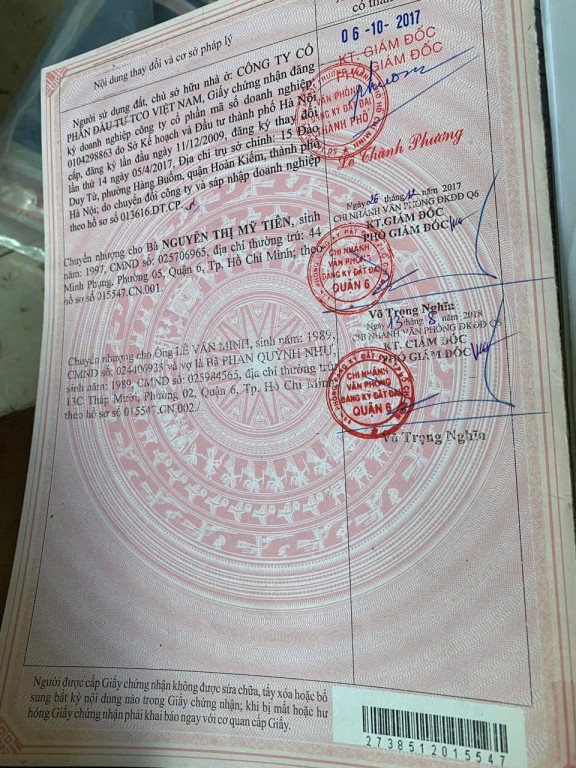 Nội dung thay đổi và cơ sở pháp lý
có thẩm
Người sử dụng đất, chủ sở hữu nhà ở: CÔNG TY CỔ
PHẦN ĐẦU TƯ TCO VIỆT NAM, Giấy chứng nhận đăng
ký doanh nghiệp công ty cổ phần mã số doanh nghiệp:
0104298863 do Sở Kế hoạch và Đầu tư thành phố Hà Nội
cấp, đăng ký lần đầu ngày 11/12/2009, đăng ký thay đổi
lần thứ 14 ngày 05/4/2017, Địa chỉ trụ sở chính: 15 Đào
Duy Từ, phường Hàng Buồm, quận Hoàn Kiếm, thành phố
Hà Nội; do chuyển đổi công ty và sáp nhập doanh nghiệp
theo hồ sơ số 013616.DT.CP.
06-10-2017
KT.GIÁM ĐỐC
GIÁM ĐỐC
VĂN PHÒNG
ĐĂNG KÝ ĐẤT ĐAI
THÀNH PHỐ
Lê Thành Phương
Chuyển nhượng cho Bà NGUYỄN THỊ MỸ TIÊN, sinh
năm: 1997, CMND số: 025706965, địa chỉ thường trú: 44
Minh Phụng, Phường 05, Quận 6, Tp. Hồ Chí Minh; theo
hồ sơ số 015547.CN.001.
Ngày 06 tháng 12 năm 2017
CHI NHÁNH VĂN PHÒNG ĐKĐĐ Q6
KT.GIÁM ĐỐC
PHÓ GIÁM ĐỐC
CHI NHÁNH
VĂN PHÒNG
ĐĂNG KÝ ĐẤT ĐAI
QUẬN 6
Võ Trọng Nghĩa
Chuyển nhượng cho Ông LÊ VĂN MINH, sinh năm: 1989,
CMND số: 024406933 và vợ là Bà PHAN QUỲNH NHƯ,
sinh năm: 1989, CMND số: 025984565, địa chỉ thường trú:
13C Tháp Mười, Phường 02, Quận 6, Tp. Hồ Chí Minh;
theo hồ sơ số 015547.CN.002./
Ngày 13 tháng 8 năm 2018
CHI NHÁNH VĂN PHÒNG ĐKĐĐ Q6
KT. GIÁM ĐỐC
PHÓ GIÁM ĐỐC
CHI NHÁNH
VĂN PHÒNG
ĐĂNG KÝ ĐẤT ĐAI
QUẬN 6
Võ Trọng Nghĩa
Người được cấp Giấy chứng nhận không được sửa chữa, tẩy xóa hoặc bổ
sung bất kỳ nội dung nào trong Giấy chứng nhận; khi bị mất hoặc hư
hỏng Giấy chứng nhận phải khai báo ngay với cơ quan cấp Giấy.
2738512015547